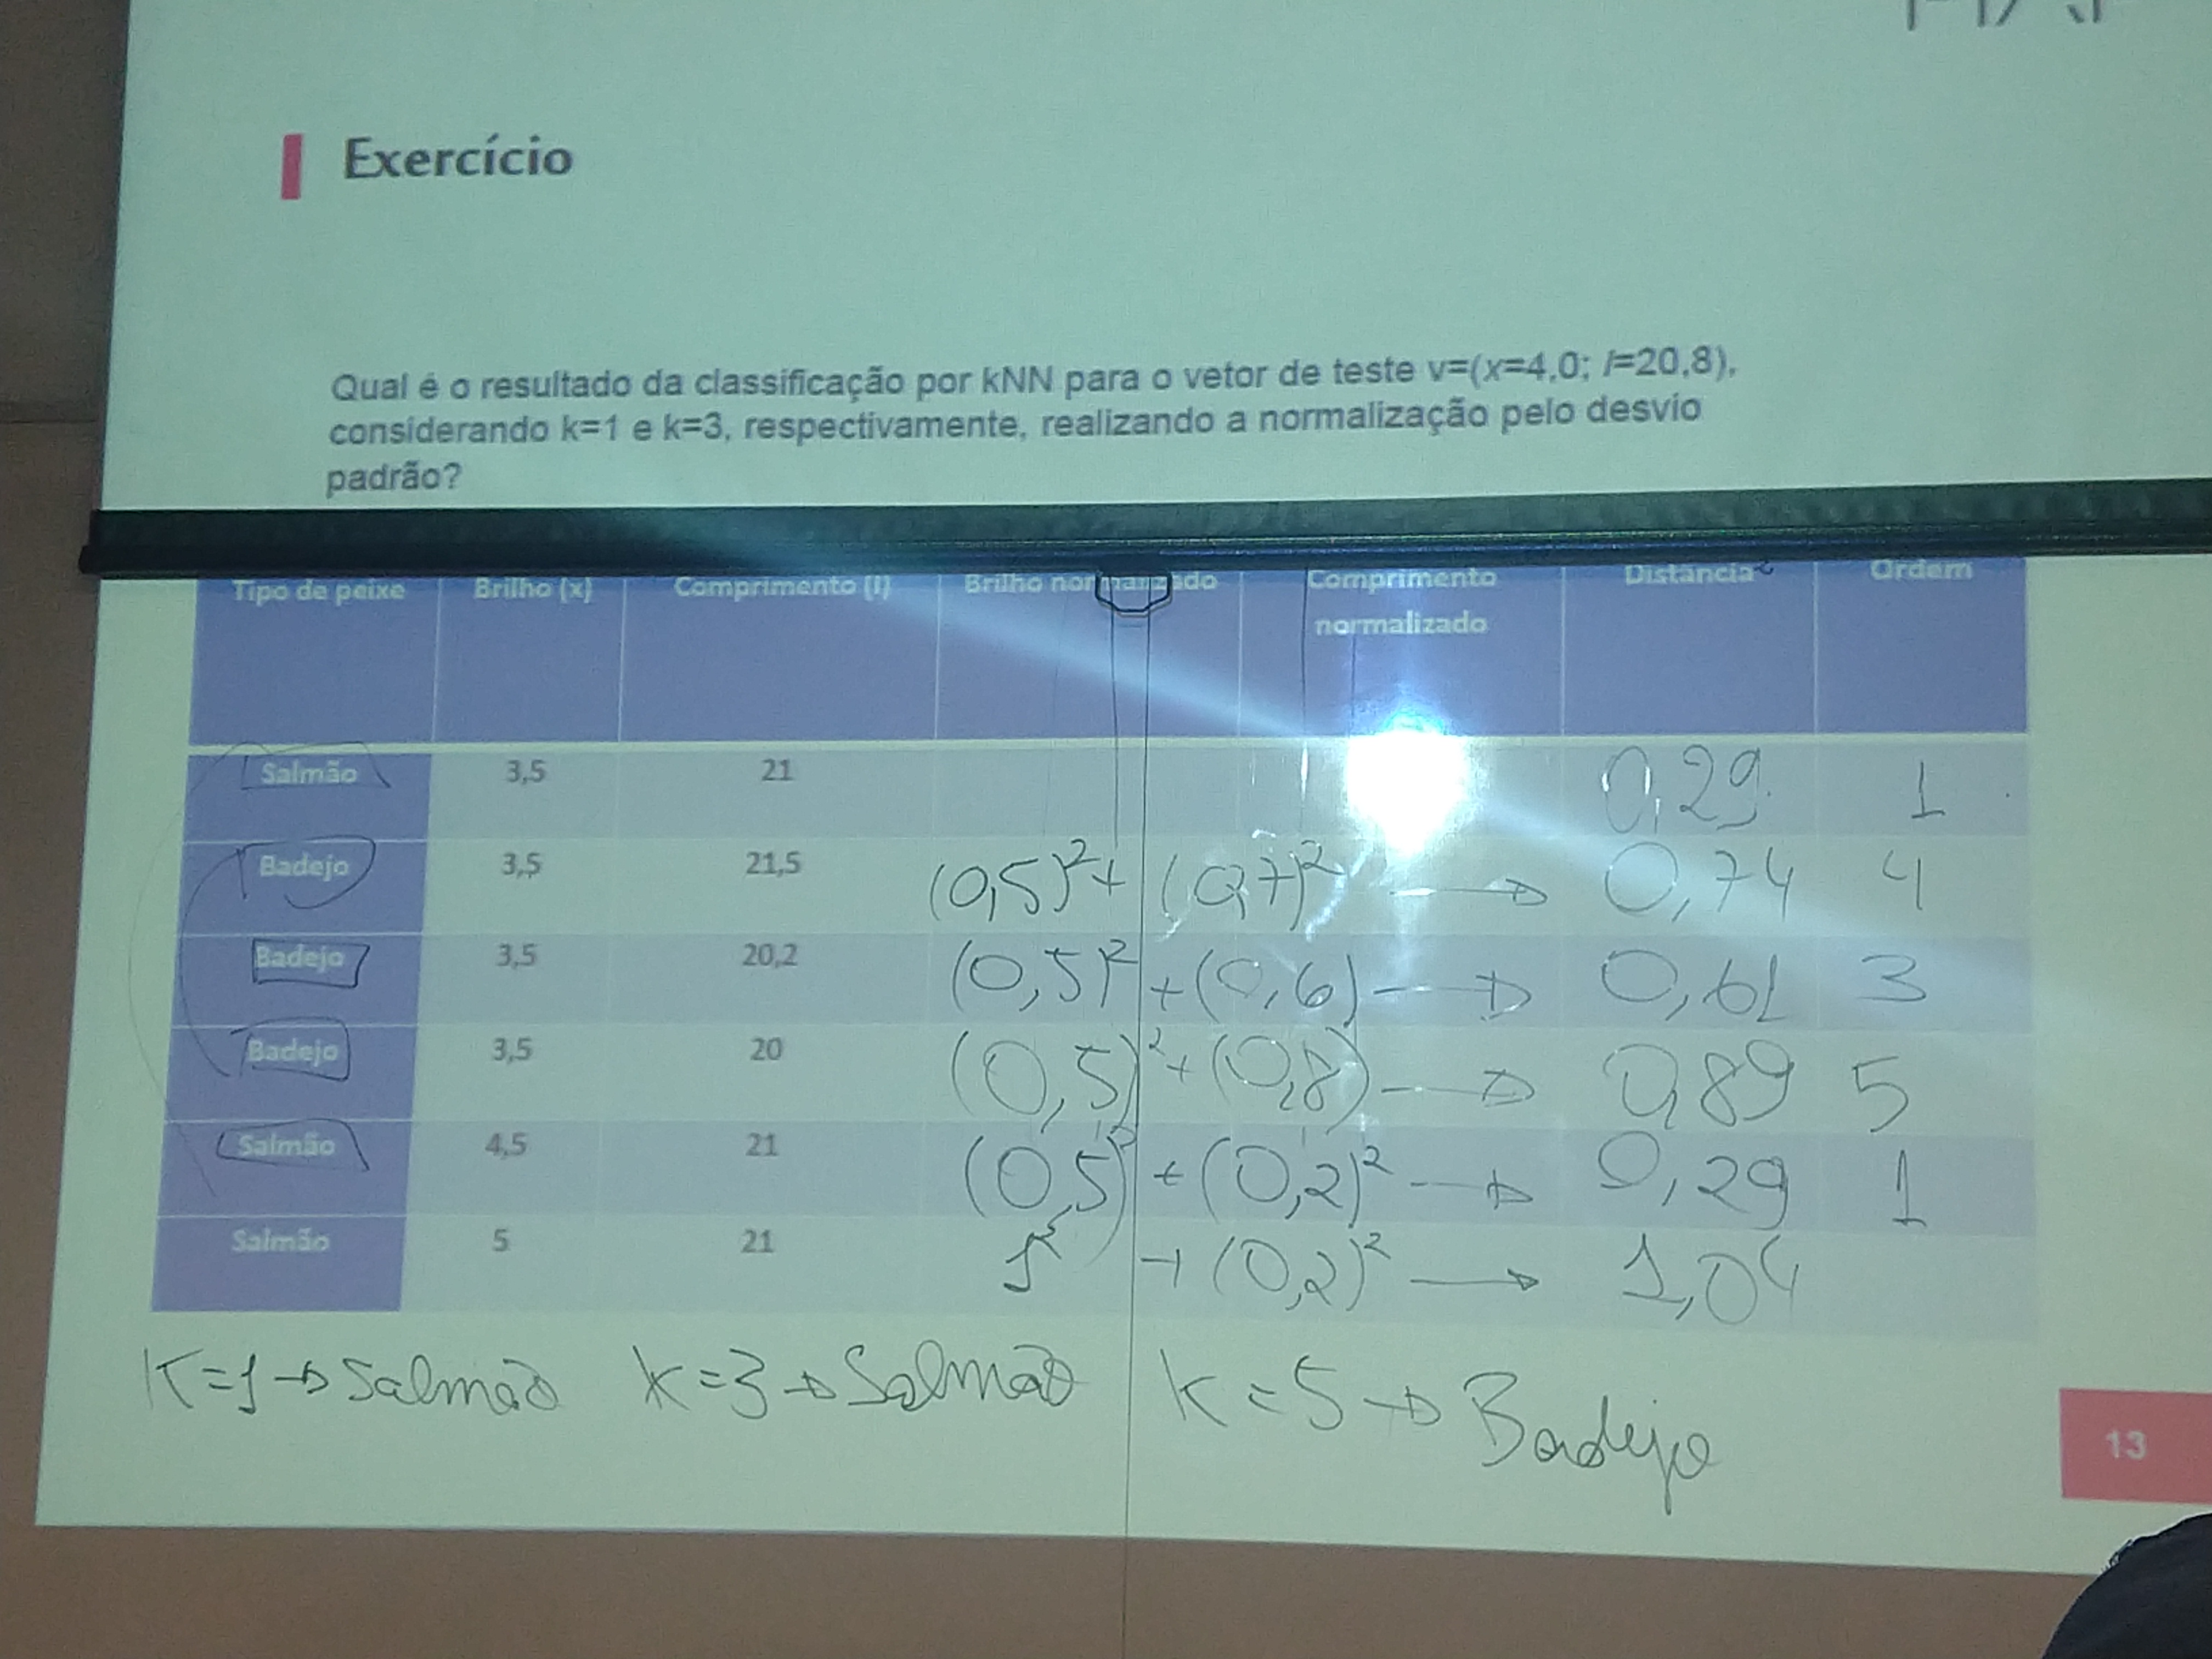 Exercício
Qual é o resultado da classificação por kNN para o vetor de teste v=(x=4,0; l=20,8),
considerando k=1 e k=3, respectivamente, realizando a normalização pelo desvio
padrão?
Tipo de peixe Brilho (x) Comprimento (l) Brilho normalizado Comprimento normalizado Distância² Ordem
Salmão 3,5 21 0,29 1
Badejo 3,5 21,5 (0,5)² + (0,7)² → 0,74 4
Badejo 3,5 20,2 (0,5)² + (0,6) → 0,61 3
Badejo 3,5 20 (0,5)² + (0,8) → 0,89 5
Salmão 4,5 21 (0,5)² + (0,2)² → 0,29 1
Salmão 5 21 1² + (0,2)² → 1,04
K=1 → Salmão K=3 → Salmão K=5 → Badejo
13